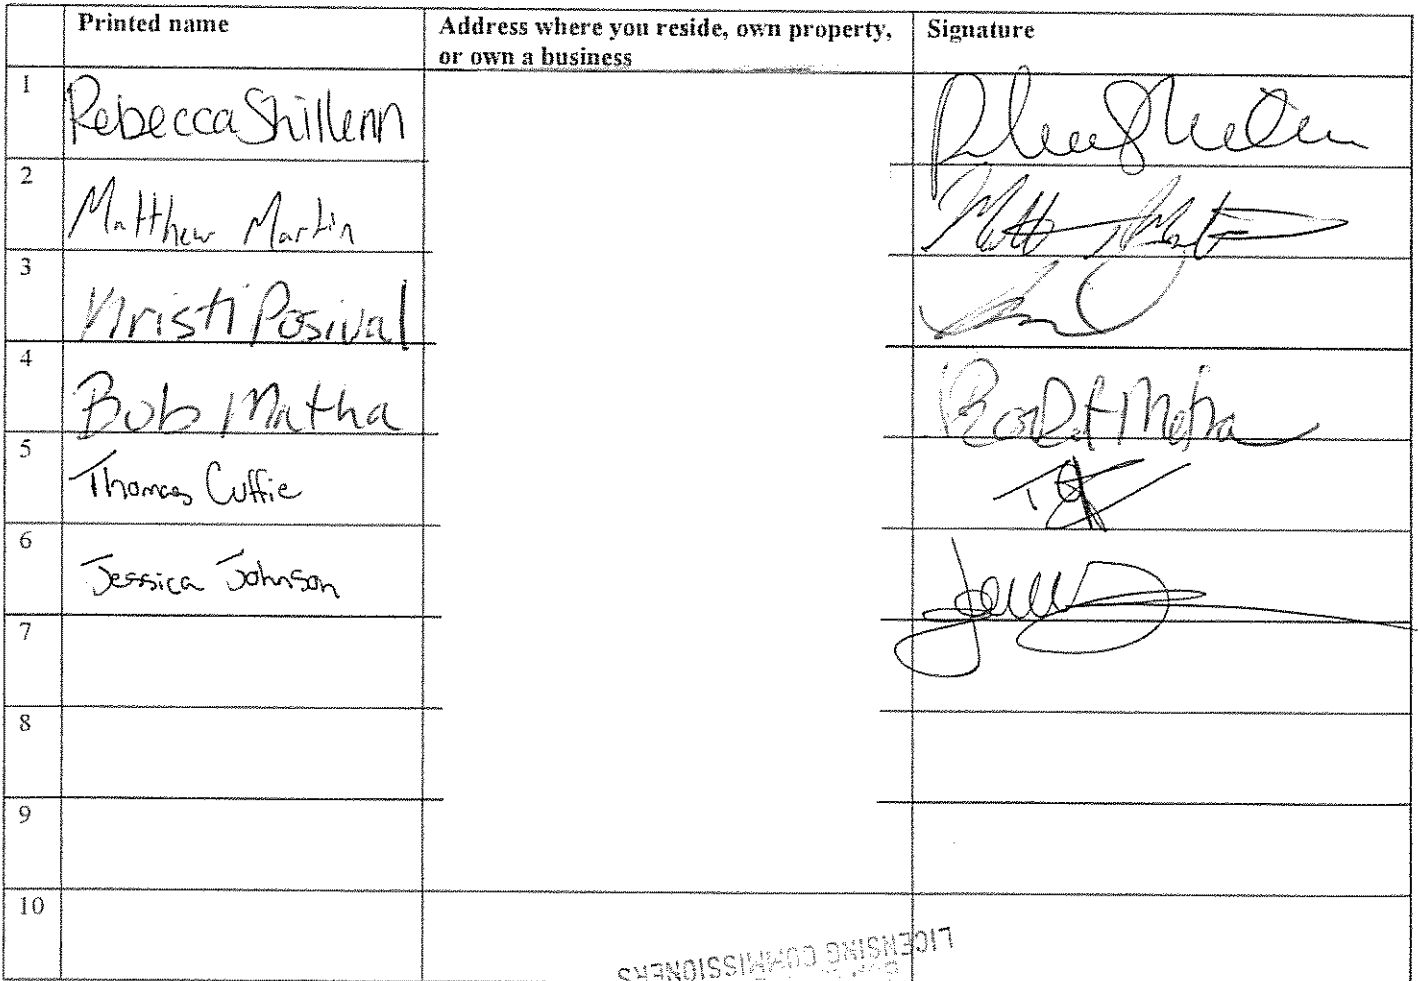 Printed name Address where you reside, own property, Signature
or own a business
1 Rebecca Shillenn
2 Matthew Martin
3 Kristi Posival
4 Bob Matha
5 Thomas Cuffie
6 Jessica Johnson
7
8
9
10
LICENSING COMMISSIONERS